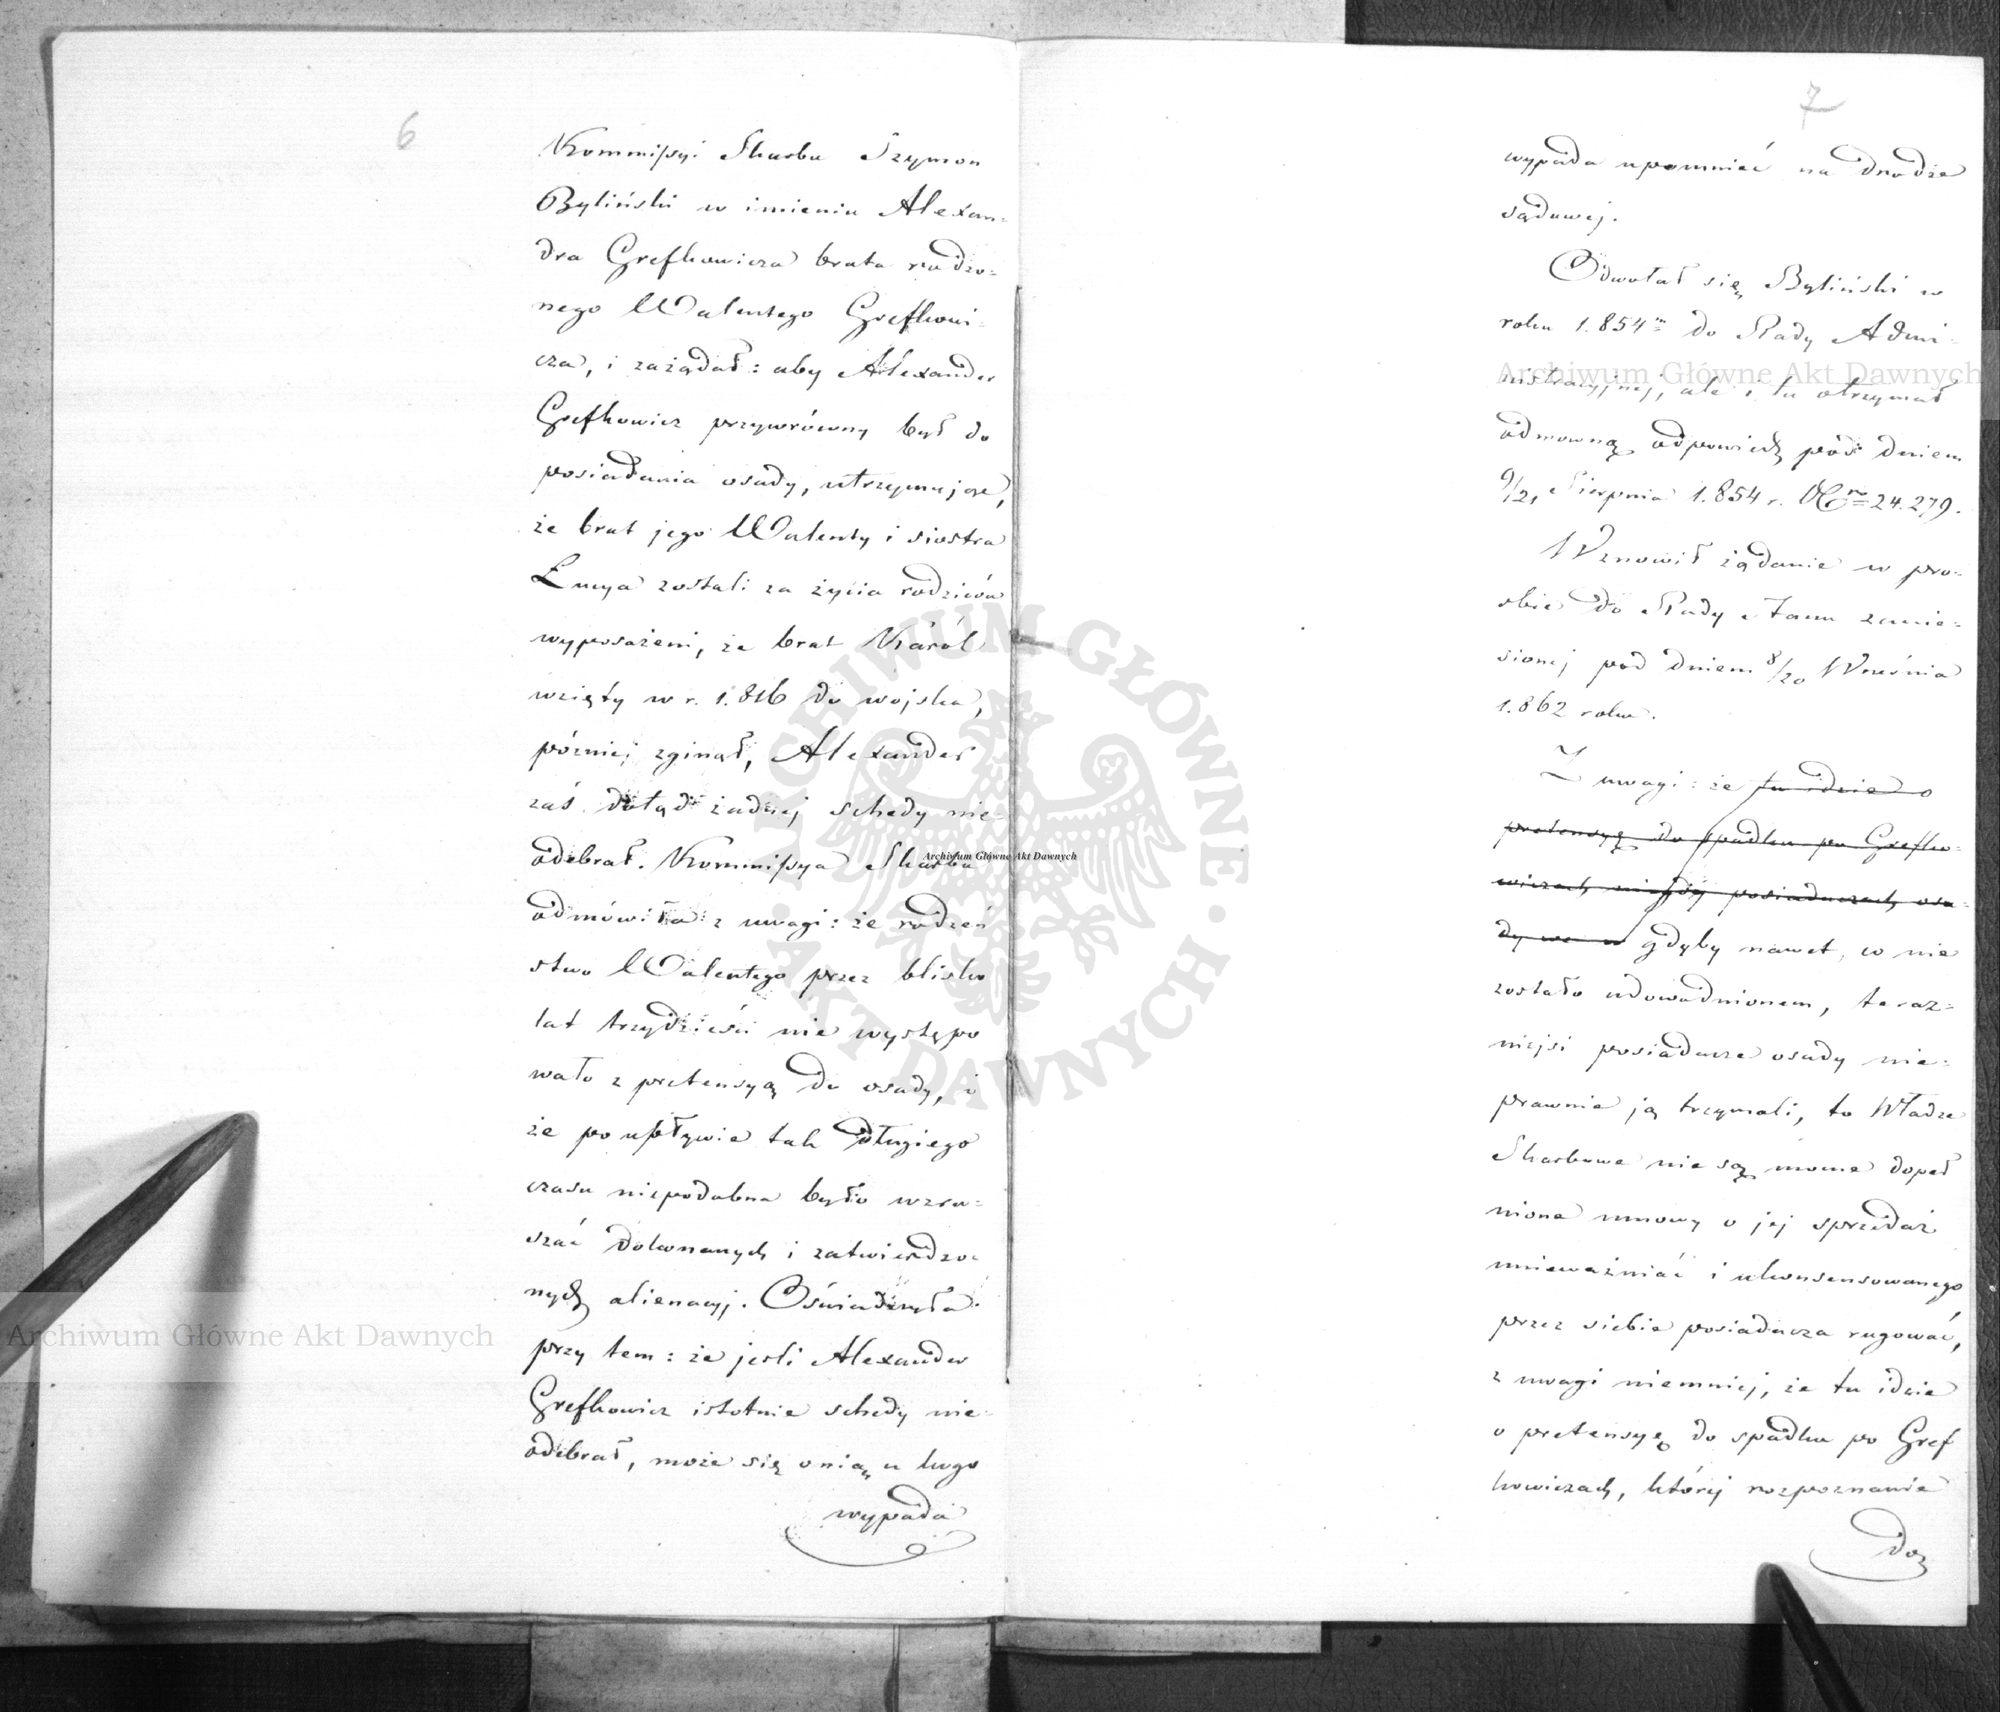 6
Kommissyi Skarbu Szymon
Byliński w imieniu Alexan-
dra Grefkowicza brata rodzo-
nego Walentego Grefkowi-
cza, i zażądał: aby Alexander
Grefkowicz przywrócony był do
posiadania osady, utrzymując,
że brat jego Walenty i siostra
Łucya zostali za życia rodziców
wyposażeni, że brat Karól
wzięty w r. 1.816 do wojska,
później zginął, Alexander
zaś dotąd żadnej schedy nie-
odebrał. Kommissya Skarbu
odmówiła z uwagi: że rodzeń
stwo Walentego przez blisko
lat trzydzieści nie występo
wało z pretensyą do osady, i
że po upływie tak długiego
czasu niepodobna było wzru-
szać dokonanych i zatwierdzo-
nych alienacyj. Oświadczyła
przy tem: że jeśli Alexander
Grefkowicz istotnie schedy nie-
odebrał, może się o nią u kogo
wypada
7
wypada upomnieć na drodze
sądowej.
Odwołał się Byliński w
roku 1.854m do Rady Admi-
nistracyjnej, ale i tu otrzymał
odmowną odpowiedź pod dniem
9/21 Sierpnia 1.854 r. Nro 24.279.
Wznowił żądanie w proś-
bie do Rady Stanu zanie-
sionej pod dniem 8/20 Września
1.862 roku.
Z uwagi: że tu idzie o
pretensyę do spadku po Grefko-
wiczach między posiadaczach osa-
dy we w gdyby nawet, co nie
zostało udowodnionem, teraz-
niejsi posiadacze osady nie-
prawnie ją trzymali, to Władze
Skarbowe nie są mocne dopeł
nione umowy o jej sprzedaż
unieważniać i ukonsensowanego
przez siebie posiadacza rugować,
z uwagi niemniej, że tu idzie
o pretensyę do spadku po Gref
kowiczach, której rozpoznanie
do
Archiwum Główne Akt Dawnych
Archiwum Główne Akt Dawnych
Archiwum Główne Akt Dawnych
ARCHIWUM GŁÓWNE AKT DAWNYCH